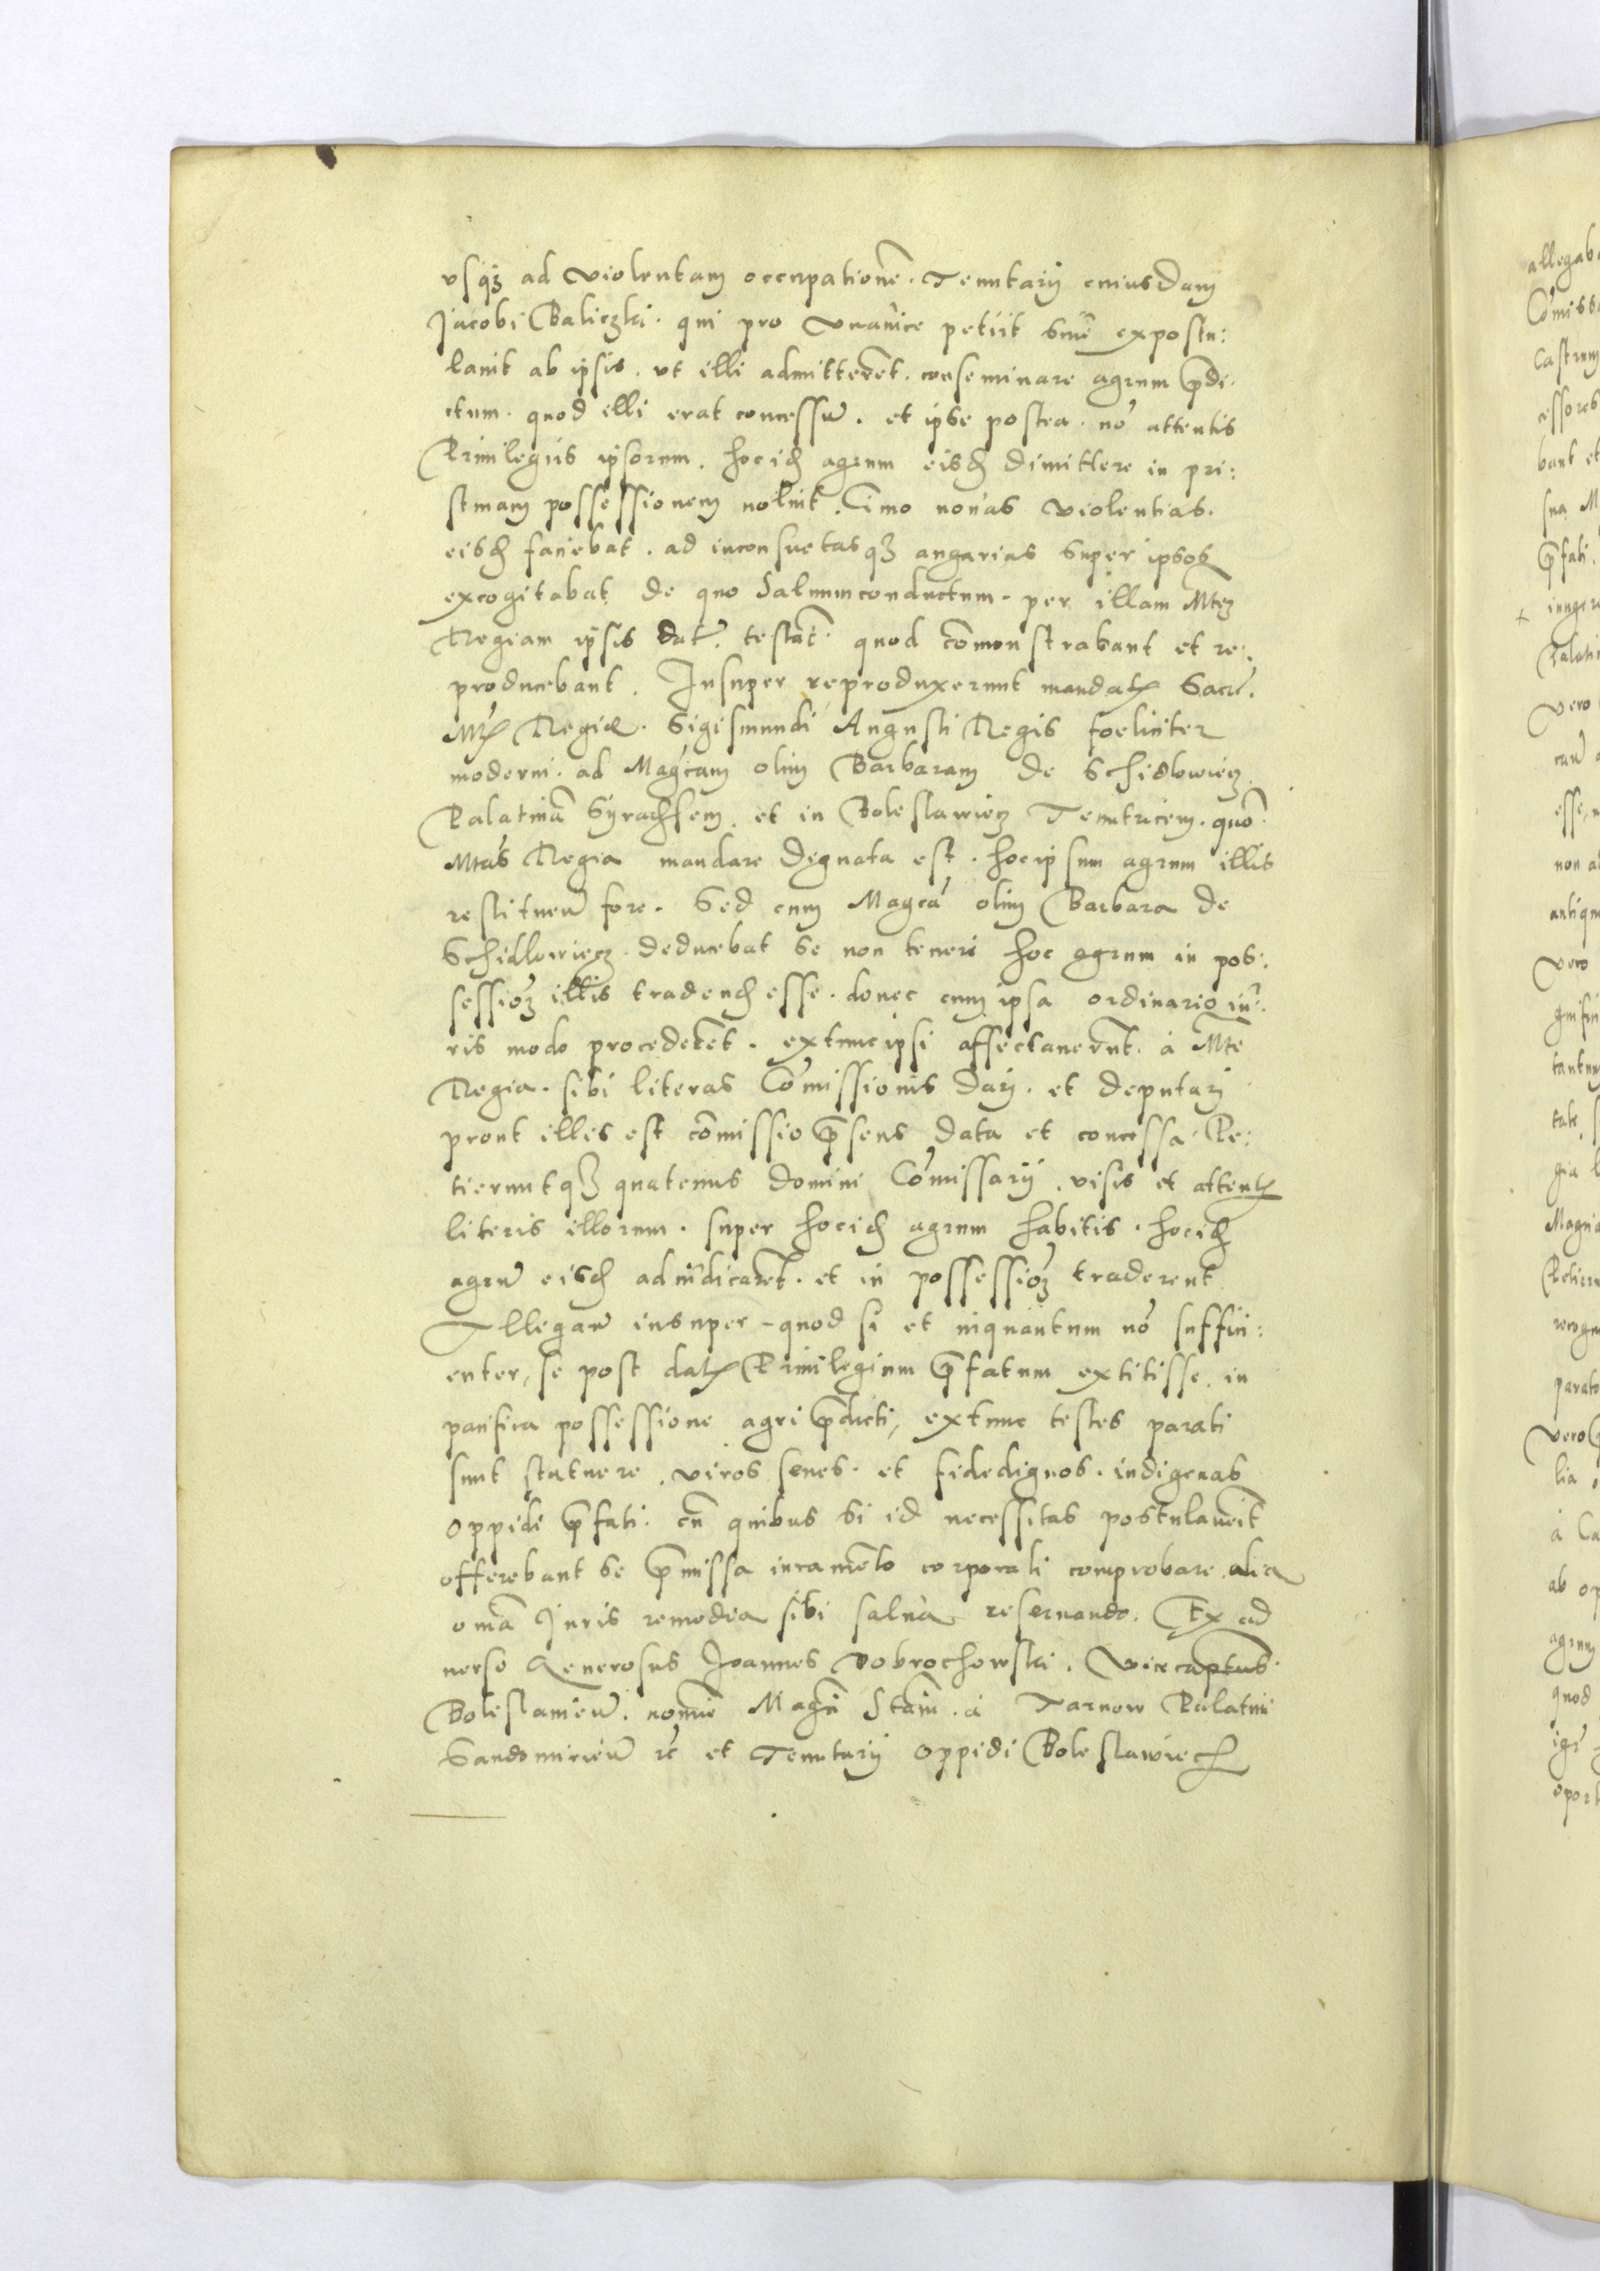 vsq3 ad violentam occupationē. Tenutarij cuiusdam
Jacobi Baliczki. qui pro vna vice petiit siue expostu:
lauit ab ipsis. vt illi admitterēt. conseminare agrum p̄di-
ctum. quod illi erat concessū. et ipse postea. nō attentis
Priuilegiis ipsorum. hocid agrum eisd dimittere in pri:
stinam possessionem noluit. Imo nouas violentias.
eisd faciebat. ad inconsuetasq3 angarias super ipsos
excogitabat de quo Saluumconductum. per illam Mtem
Regiam ipsis datū. testāt. quod cōmonstrabant et re.
producebant. Insuper reproduxerunt mandatū Sacrē.
Mtis Regiæ. Sigismundi Augusti Regis foeliciter
moderni. ad Magcam olim Barbaram de Schidlowiecz
Palatinā Syradsem. et in Boleslawiecz Tenutricem. quō
Mtas Regia mandare dignata est. hocipsum agrum illis
restituēn fore. Sed cum Magca olim Barbara de
Schidlowiecz deducebat se non teneri hoc agrum in pos:
session illis tradend esse. donec cum ipsa ordinario iu:
ris modo procederēt. extunc ipsi affectauerūnt. a Mte
Regia. sibi literas Cōmissionis darj. et deputarj
prout illis est cōmissio p̄sens data et concessa. Pe:
tieruntq3 quatenus domini Cōmissarij. visis et attentis
literis illorum. super hocid agrum habitis. hocid
agrū eisd adiudicarēt. et in possession traderent
Allegan insuper quod si et inquantum nō suffici:
enter, se post datū Priuilegium p̄fatum extitisse. in
pacifica possessione agri p̄dicti, extunc testes parati
sunt statuere. viros senes. et fidedignos. indigenas
oppidi p̄fati. cū quibus si id necessitas postulauerit
offerebant se p̄missa iuramēto corporali comprobare. alia
omīa Juris remedia sibi salua reseruando. Ex ad
uerso Generosus Joannes Dobrochowski. Vicecaptus.
Boleslauieñ. nomīe Magci Stani. a Tarnow Palatini
Sandomirieñ rc et Tenutarij oppidi Boleslawiecz